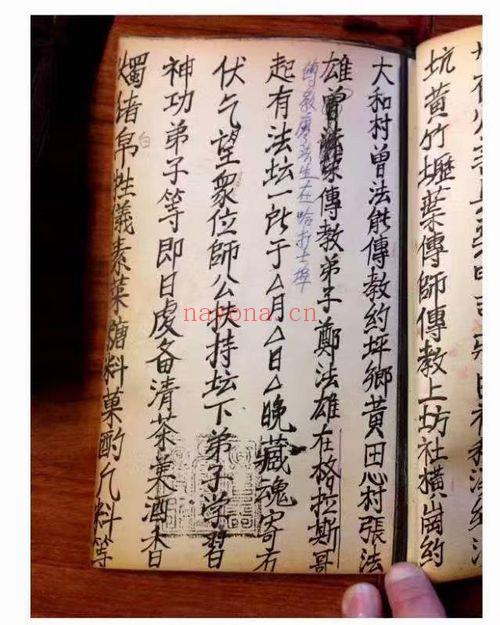 坑黄竹壢葉傳師傳教上坊社横崗約
大和村曾法能傳教約坪鄉黄田村張法
雄傳教弟子鄭法雄在格拉斯哥
傳教廖法生在哈打士埠
起有法坛一所于△月△日△晚藏魂寄
伏乞望衆位師公扶持坛下弟子学習
神功弟子等即日虔备清茶美酒香
白
燭绪帛牲儀素菜糖料菓酌乞料等
nayona.cn